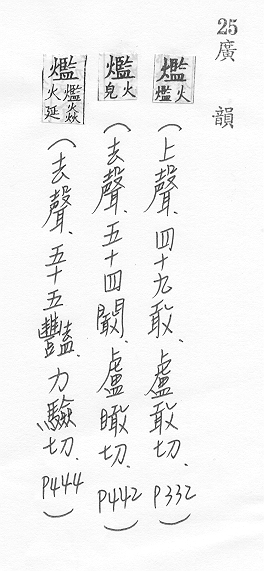 25廣韻
爁火爁（上聲、四十九敢、盧敢切、P332）
爁火皃（去聲、五十四闞、盧瞰切、P442）
爁爁焱火延（去聲、五十五豔、力驗切、P444）